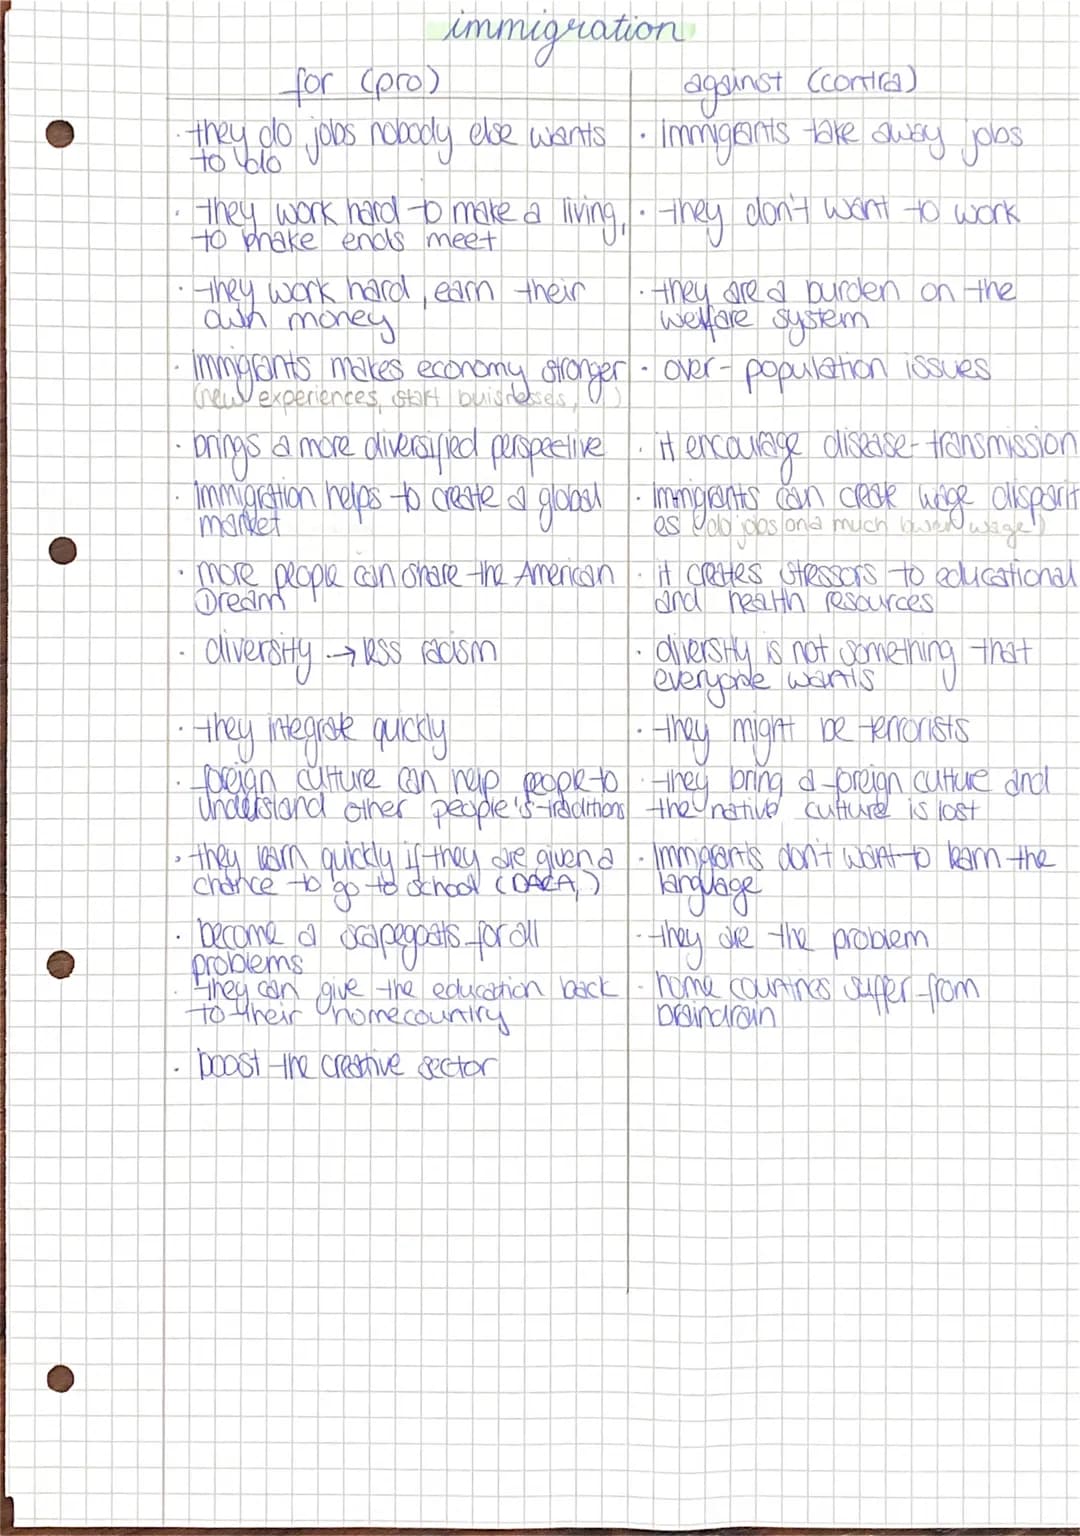 immigration
for (pro)
against (contra)
· they do jobs nobody else wants
to do
· they work hard to make a living,
to make ends meet
· they work hard, earn their
own money
· immigrants makes economy stronger
(new experiences, start buisnesses,)
· brings a more diversified perspective
· immigration helps to create a global
market
· more people can share the American
Dream
· diversity → less racism
· they integrate quickly
· foreign culture can help people to
understand other people's traditions
· they learn quickly if they are given a
chance to go to school (DACA,)
· become a scapegoats for all
problems
· they can give the education back
to their homecountry
· boost the creative sector
· immigrants take away jobs
· they don't want to work
· they are a burden on the
welfare system
· over-population issues
· it encourage disease-transmission
· immigrants can create wage disparit
es (do jobs on a much lower wage)
· it creates stressors to educational
and health resources
· diversity is not something that
everyone wants
· they might be terrorists
· they bring a foreign culture and
the native culture is lost
· immigrants don't want to learn the
language
· they are the problem
· home countries suffer from
braindrain